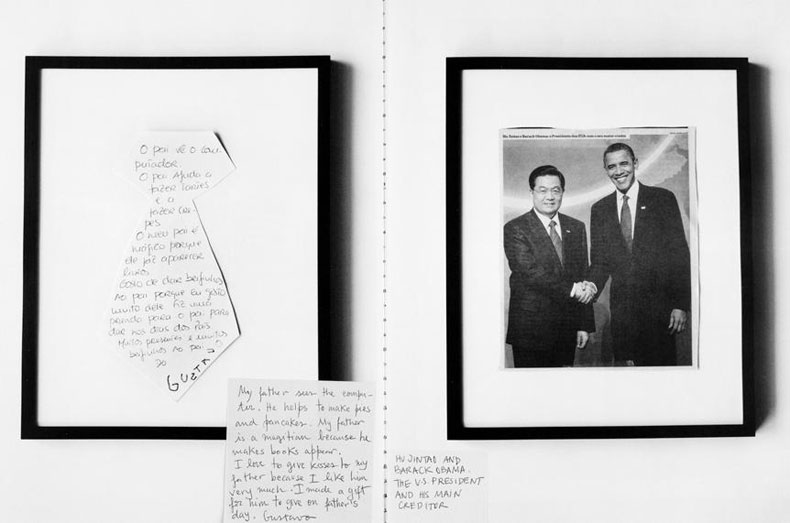 O pai vê o com
putador.
O pai Ajuda a
fazer
e a
fazer cre
pes
O meu pai é
mágico porque
ele faz aparecer
livros
Gosto de dar beijinhos
Ao pai porque eu gosto
muito dele. Fiz uma
prenda para o pai para
dar nos dias dos Pais
Muitos presentes e muitos
beijinhos Ao pai.
Do
GUSTAVO
My father sees the compu-
ter. He helps to make pies
and pancakes. My father
is a magitian because he
makes books appear.
I love to give kisses to my
father because I like him
very much. I made a gift
for him to give on father's
day. Gustavo
Hu Jintao e Barack Obama: o Presidente dos EUA com o seu maior credor
HU JINTAO AND
BARACK OBAMA.
THE U.S. PRESIDENT
AND HIS MAIN
CREDITER